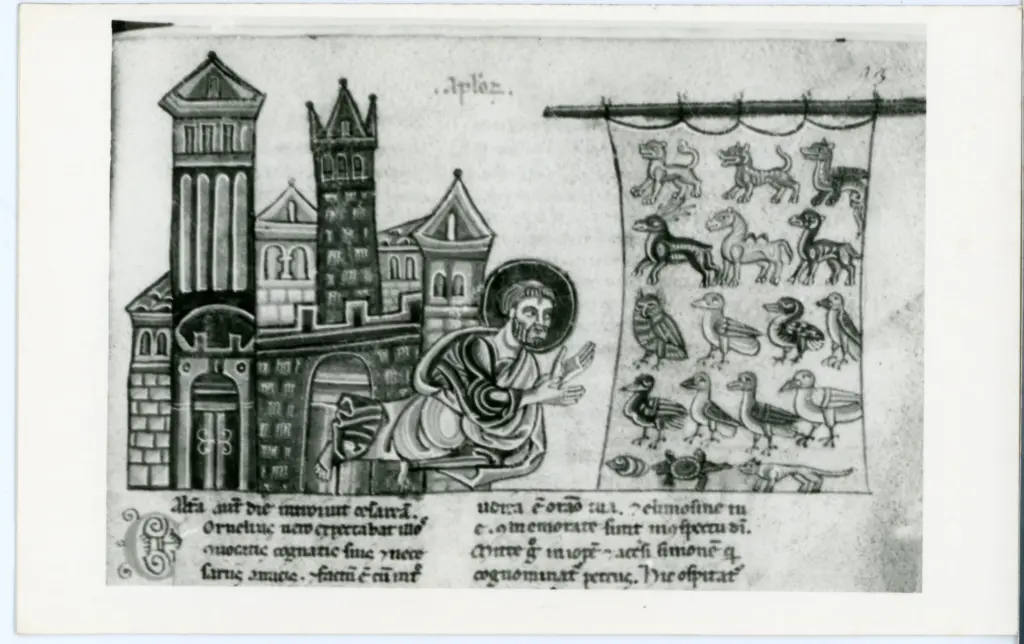 .aploꝝ.
13
Altā aut̄ die introiuit cesareā.
Ornelius uero expectabat illos
ↄuocatis cognatis suis ⁊ nece
sariis amicis. ⁊ factū ē cū int͛
udita ē oratio tua. ⁊ elimosine tu
e. ↄmemorate sunt in ↄspectu dī.
Mitte g̊ in iopē ⁊ accersi simonē q
cognominat᷑ petrus. Hic ospitat᷑